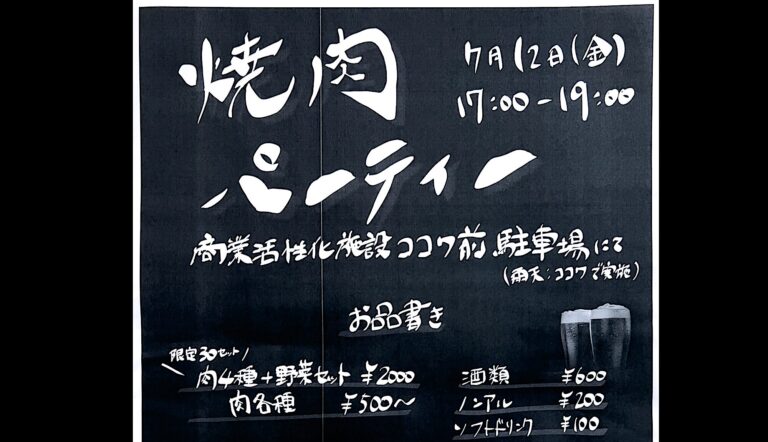 焼肉
パーティー
7月12日(金)
17:00-19:00
商業活性化施設ココワ前駐車場にて
(雨天:ココワで実施)
お品書き
限定30セット
肉4種+野菜セット ¥2000
肉各種 ¥500〜
酒類 ¥600
ノンアル ¥200
ソフトドリンク ¥100